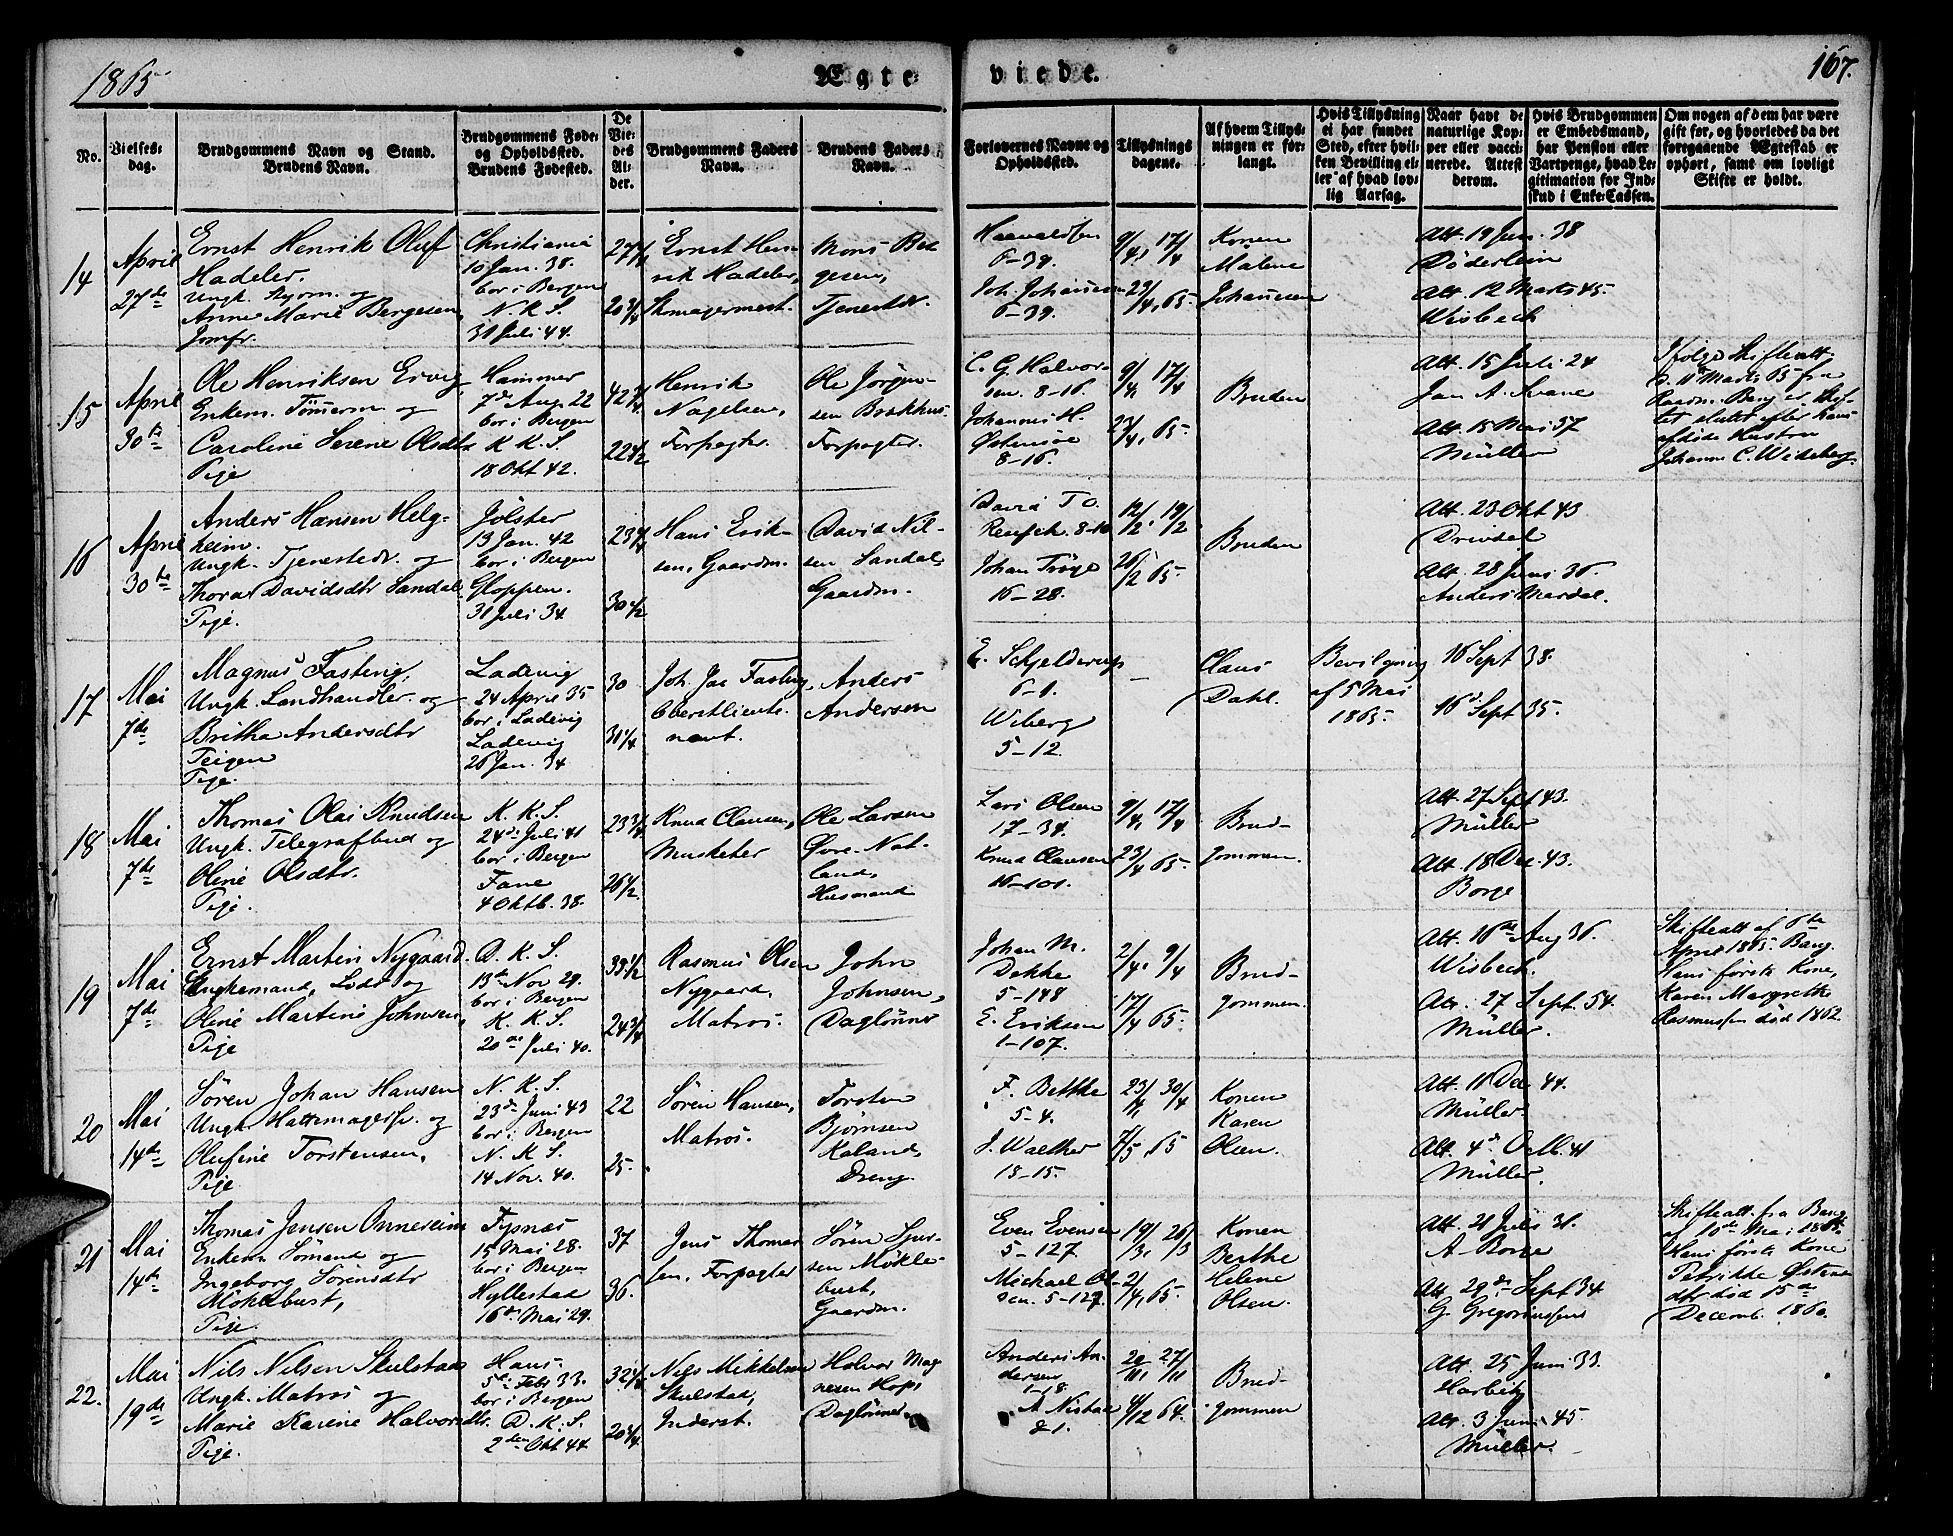 1865
Ægte
viede.
167.
No.
Vielses-
dag.
Brudgommens Navn og Stand.
Brudens Navn.
Brudgommens Føde-
og Opholdssted.
Brudens Fødested.
De
Vie-
des
Al-
der.
Brudgommens Faders
Navn.
Brudens Faders
Navn.
Forlovernes Navne og
Opholdssted.
Tillysnings
dagene.
Af hvem Tillys-
ningen er for-
langt.
Hvis Tillysning
ei har fundet
Sted, efter hvil-
ken Bevilling el-
ler af hvad lov-
lig Aarsag.
Naar havt de
naturlige Kop-
per eller vacci-
nerede. Attest
derom.
Hvis Brudgommen
er Embedsmand,
har Pension eller
Vartpenge, hvad Le-
gitimation for Ind-
skud i Enke-Cassen.
Om nogen af dem har være
gift før, og hvorledes da det
foregaaende Ægteskab er
ophørt, samt om lovligt
Skifte er holdt.
14
April
27de
Ernst Henrik Oluf
Hadeler.
Ungk. Skjorm. og
Anne Marie Bergesen,
Jomfr.
Christiania
10 Jan. 38.
bor i Bergen
N. K. S.
31 Juli 44.
27 1/4
20 3/4
Ernst Hen-
rik Hadeler,
Skomagermest.
Mons Ber
gesen,
Tjenestk.
Harvaldsen
6-39.
Joh. Johannesen
6-39.
9/4, 17/4
23/4, 65.
Konen
Malene
Johannesen
Att. 19 Jun. 38
Døderlein
Att. 12 Marts 45.
Wisbech
15
April
30te
Ole Henriksen Ervig
Enkem. Tømerm. og
Caroline Serene Olsdtr.
Pige
Hammer
7de Aug. 22
bor i Bergen
K. K. S.
18 Okt 42.
42 3/4
22 1/2
Henrik
Nagelsen,
Forpagter.
Ole Jørgen-
sen Brækhus
Forpagter.
C. G. Halvor-
sen. 8-16.
Johannes H.
Østensøe
8-16.
9/4, 17/4
23/4, 65.
Bruden
Att. 15 Juli 24
Jan A. Svane
Att. 15 Mai 57
Müller
Ifølge Skifteatt.
d. 11 Marts 65 fra
Bang er Skif-
tet sluttet efter hans
afdøde Hustru
Johanne C. Wideberg.
16
April
30te
Anders Hansen Helg-
heim.
Ungk. Tjenestedr. og
Thora Davidsdtr Sandal
Pige.
Jølster
13 Jan. 42
bor i Bergen
Gloppen.
31 Juli 34
23 1/4
30 1/2
Hans Erik-
sen, Gaardm.
David Nil-
sen Sandal,
Gaardm.
David T O.
Reusch. 8-10
Johan Trøge
16-28.
12/2, 19/2
26/2 65.
Bruden
Att. 23 Okt 43
Drivdal
Att. 28 Juni 36.
Anders Mardal.
17
Mai
7de
Magnus Fasting,
Ungk. Landhandler. og
Britha Andersdtr
Teigen
Pige.
Ladevig
24 April 35
bor i Ladevig
Ladevig
26 Jan. 34
30
31 1/4
Joh. Jac Fasting,
Oberstlieute-
nant.
Anders
Andersen
E. Schjelderup
6-1.
Wiberg
5-12.
—
Claus
Dahl.
Bevilgning
af 5 Mai
1865.
16 Sept 38.
16 Sept 35.
18
Mai
7de
Thomas Olai Knudsen
Ungk. Telegrafbud og
Oline Olsdtr.
Pige.
K. K. S.
24de Juli 41
bor i Bergen
Fane
4 Oktb. 38.
23 3/4
26 1/2
Knud Clausen,
Musketer
Ole Larsen
Øvre Nat-
land,
Husmand
Lars Olsen
17-34.
Knud Clausen
16-101.
9/4, 17/4
23/4 65.
Brud-
gommen.
Att. 27 Sept 43.
Müller
Att. 18 Dec. 43.
Borge
19
Mai
7de
Ernst Martin Nygaard.
Enkemand, Lods og
Oline Martine Johnsen,
Pige
D. K. S.
13de Nov 29.
bor i Bergen
K. K. S.
20de Juli 40.
35 1/2
24 3/4
Rasmus Olsen
Nygaard,
Matros.
John
Johnsen,
Dagløner
Johan M.
Dekke
5-148
E. Eriksen
1-107.
2/4, 9/4
17/4 65.
Brud-
gommen.
Att. 16de Aug 36.
Wisbech.
Att. 27 Sept. 54.
Müller.
Skifteatt af 6te
April 1865. Bang.
Hans første Kone,
Karen Margrethe
Rasmussen død 1862.
20
Mai
14de
Søren Johan Hansen
Ungk. Hattemagersv. og
Olufine Torstensen,
Pige
N. K. S.
23de Juni 43
bor i Bergen
N. K. S.
14 Nov. 40.
22
25.
Søren Hansen,
Matros.
Torsten
Bjørnsen
Kaland,
Dreng.
F. Bethke
5-4.
J. Walther
15-15.
23/4, 30/4
7/5, 65
Konen
Karen
Olsen.
Att. 11 Dec 44.
Müller.
Att. 4de Octb. 41
Müller.
21
Mai
14de
Thomas Jensen Onnereim
Enkem Sømand og
Ingeborg Sørensdtr
Møklebust,
Pige.
Tysnæs
15 Mai 28.
bor i Bergen
Hyllestad
16de Mai 29.
37
36.
Jens Thomas
sen, Forpagter
Søren Sjur-
sen Møkle-
bust,
Gaardm.
Even Evensen
5-127.
Michael Ol-
sen. 5-127.
19/3, 26/3
2/4, 65.
Konen
Berthe
Helene
Olsen.
Att. 21 Juli 31.
A. Borge
Att. 29de Sept 34
G. Gregoriussen
Skifteatt. fra Bang
af 10de Mai 1865.
Hans første Kone
Petrikke Østens-
dtr død 15de
Decemb. 1860.
22.
Mai
19de
Nils Nilsen Skulstad
Ungk. Matros og
Marie Karine Halvorsdtr.
Pige.
Haus.
5de Febr 33.
bor i Bergen
D. K. S.
2den Okt 44.
32 1/4
20 1/4
Nils Mikkelsen
Skulstad,
Inderst.
Halvor Mag
nesen Hop,
Dagløner.
Anders An-
dersen
1-18.
A Nistad
21.
20/11, 27/11
4/12 64.
Brud-
gommen
Att. 25 Juni 33.
Harbitz
Att. 3 Juni 45.
Müller.